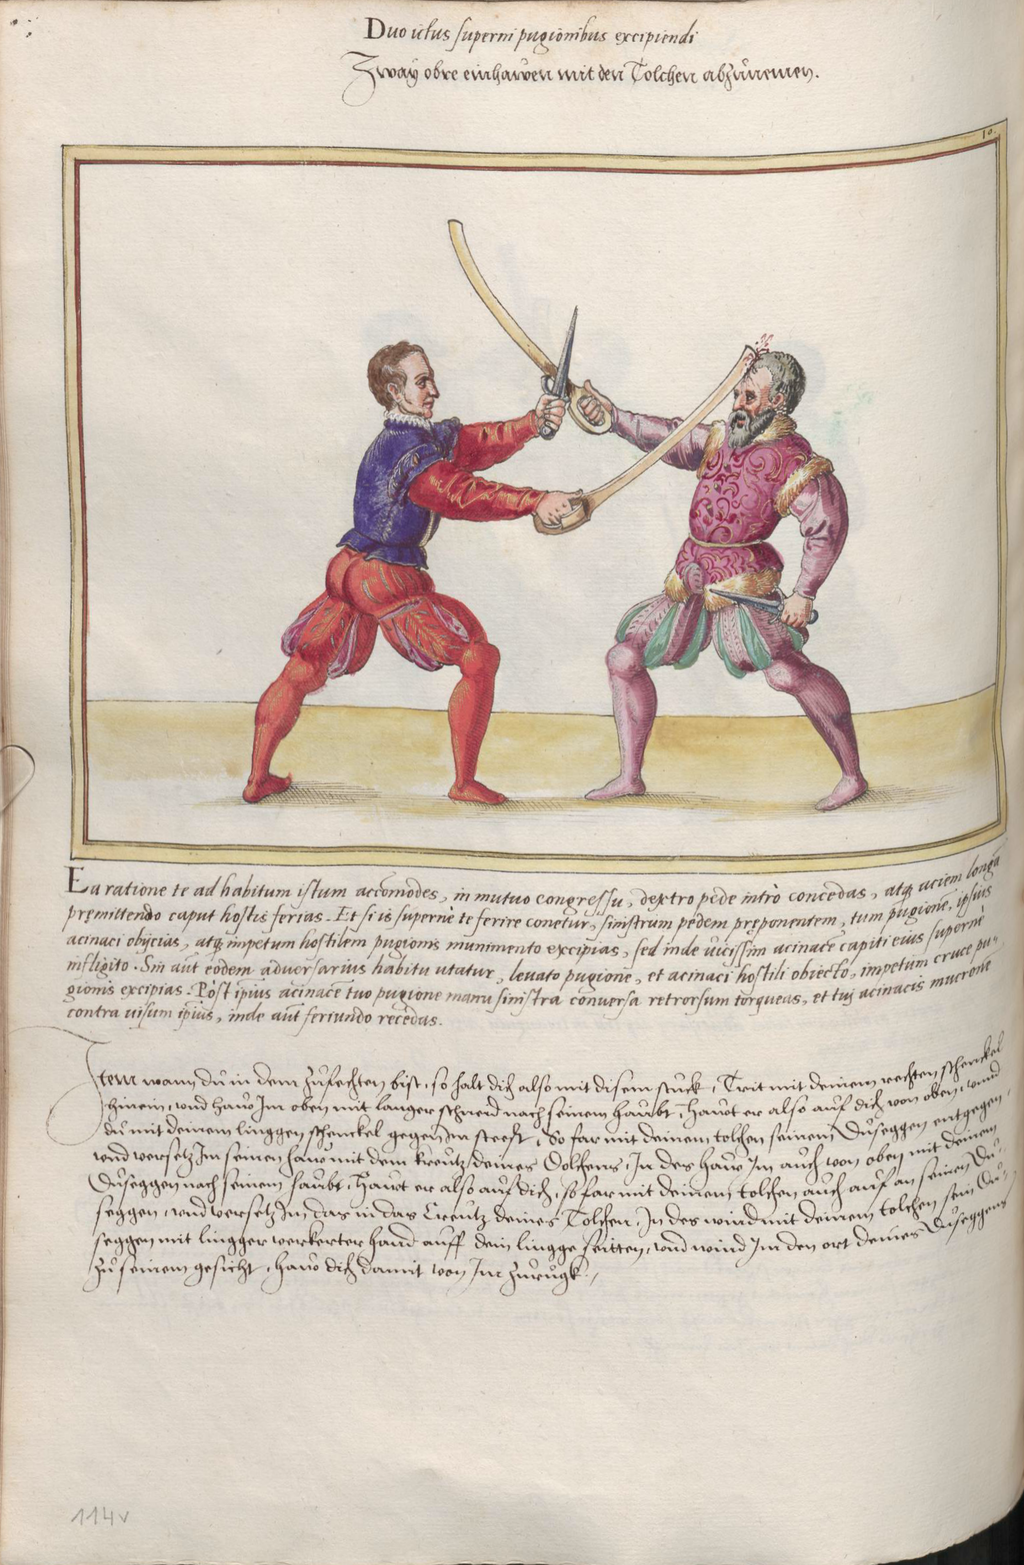 Duo ictus superni pugionibus excipiendi
Zway obre einhauen mit den Tolchen abzunemen.
10.
Ea ratione te ad habitum istum accõmodes, in mutuo congressu, dextro pede intrò concedas, atq; aciem longã
pręmittendo caput hostis ferias. Et si is supernè te ferire conetur, sinistrum pedem pręponentem, tum pugionẽ, ipsius
acinaci obijcias, atq; impetum hostilem pugionis munimento excipias, sed inde vicissim acinace capiti eius supernè
infligito. Sin aũt eodem adversarius habitu utatur, levato pugione, et acinaci hostili obiecto, impetum cruce pu-
gionis excipias. Pòst ipius acinacẽ tuo pugione manu sinistra conversa retrorsum torqueas, et tuj acinacis mucronẽ
contra uisum ipius, inde aũt feriundo recedas.
Item wann du in dem zufechten bist, so halt dich also mit disem stuck, Trit mit deinem rechten schenckel
hinein, vnd haw Im oben mit langer schneid nach seinem haubt, hawt er also auf dich von oben, vnnd
du mit deinem linggen schenckel gegen Im steest, So far mit deinem tolchen seinem Duseggen entgegen,
vnd versetz Im seinen haw mit dem kreutz deines Dolchens, In des haw Im auch von oben mit deinem
Duseggen nach seinem haubt, hawt er also auf dich, so far mit deinem tolchen auch auf an seinen Du-
seggen, vnd versetz Im das in das Creutz deines Tolchen, In des wind mit deinem tolchen sein Du-
seggen mit lingger verkerter hand auff dein lingge seitten, vnd wind Im den ort deines Duseggens
zu seinem gesicht, haw dich damit von Im zurugk.
114v